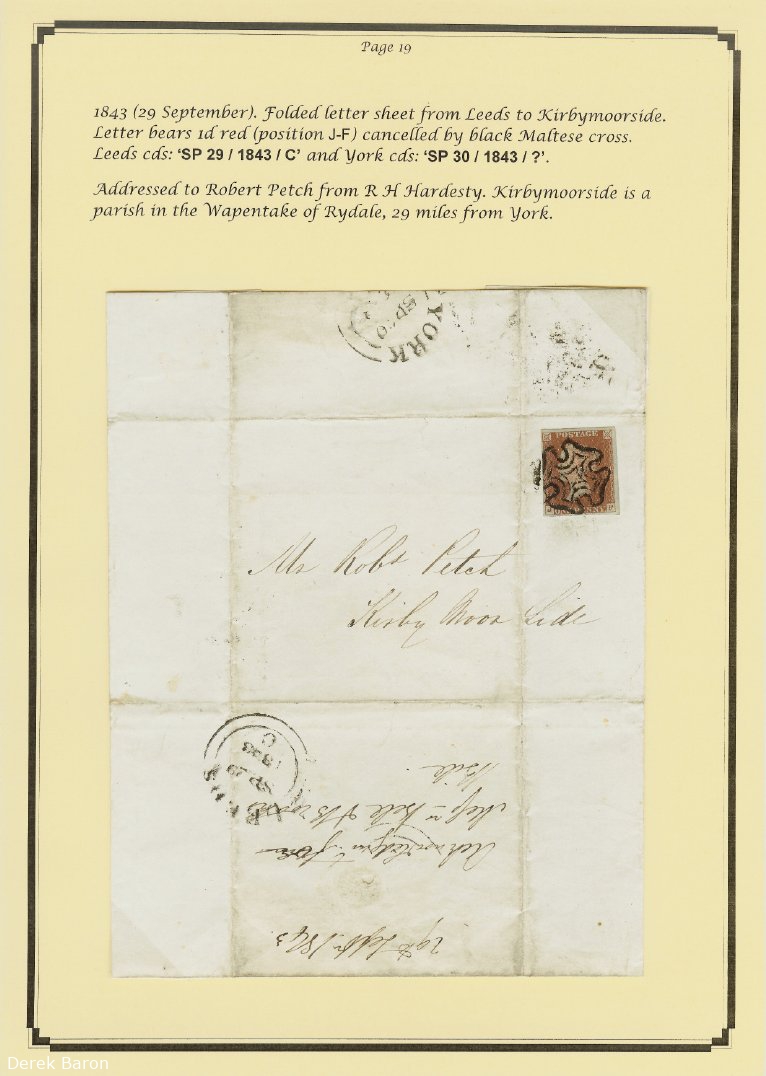 Page 19
1843 (29 September). Folded letter sheet from Leeds to Kirbymoorside.
Letter bears 1d red (position J-F) cancelled by black Maltese cross.
Leeds cds: ‘SP 29 / 1843 / C’ and York cds: ‘SP 30 / 1843 / ?’.
Addressed to Robert Petch from R H Hardesty. Kirbymoorside is a
parish in the Wapentake of Rydale, 29 miles from York.
YORK
SP
POSTAGE
ONE PENNY
Mr Robt Petch
Kirby Moor Side
LEEDS
SP 29
1843
C
Hide
29th Septr 1843
Derek Baron